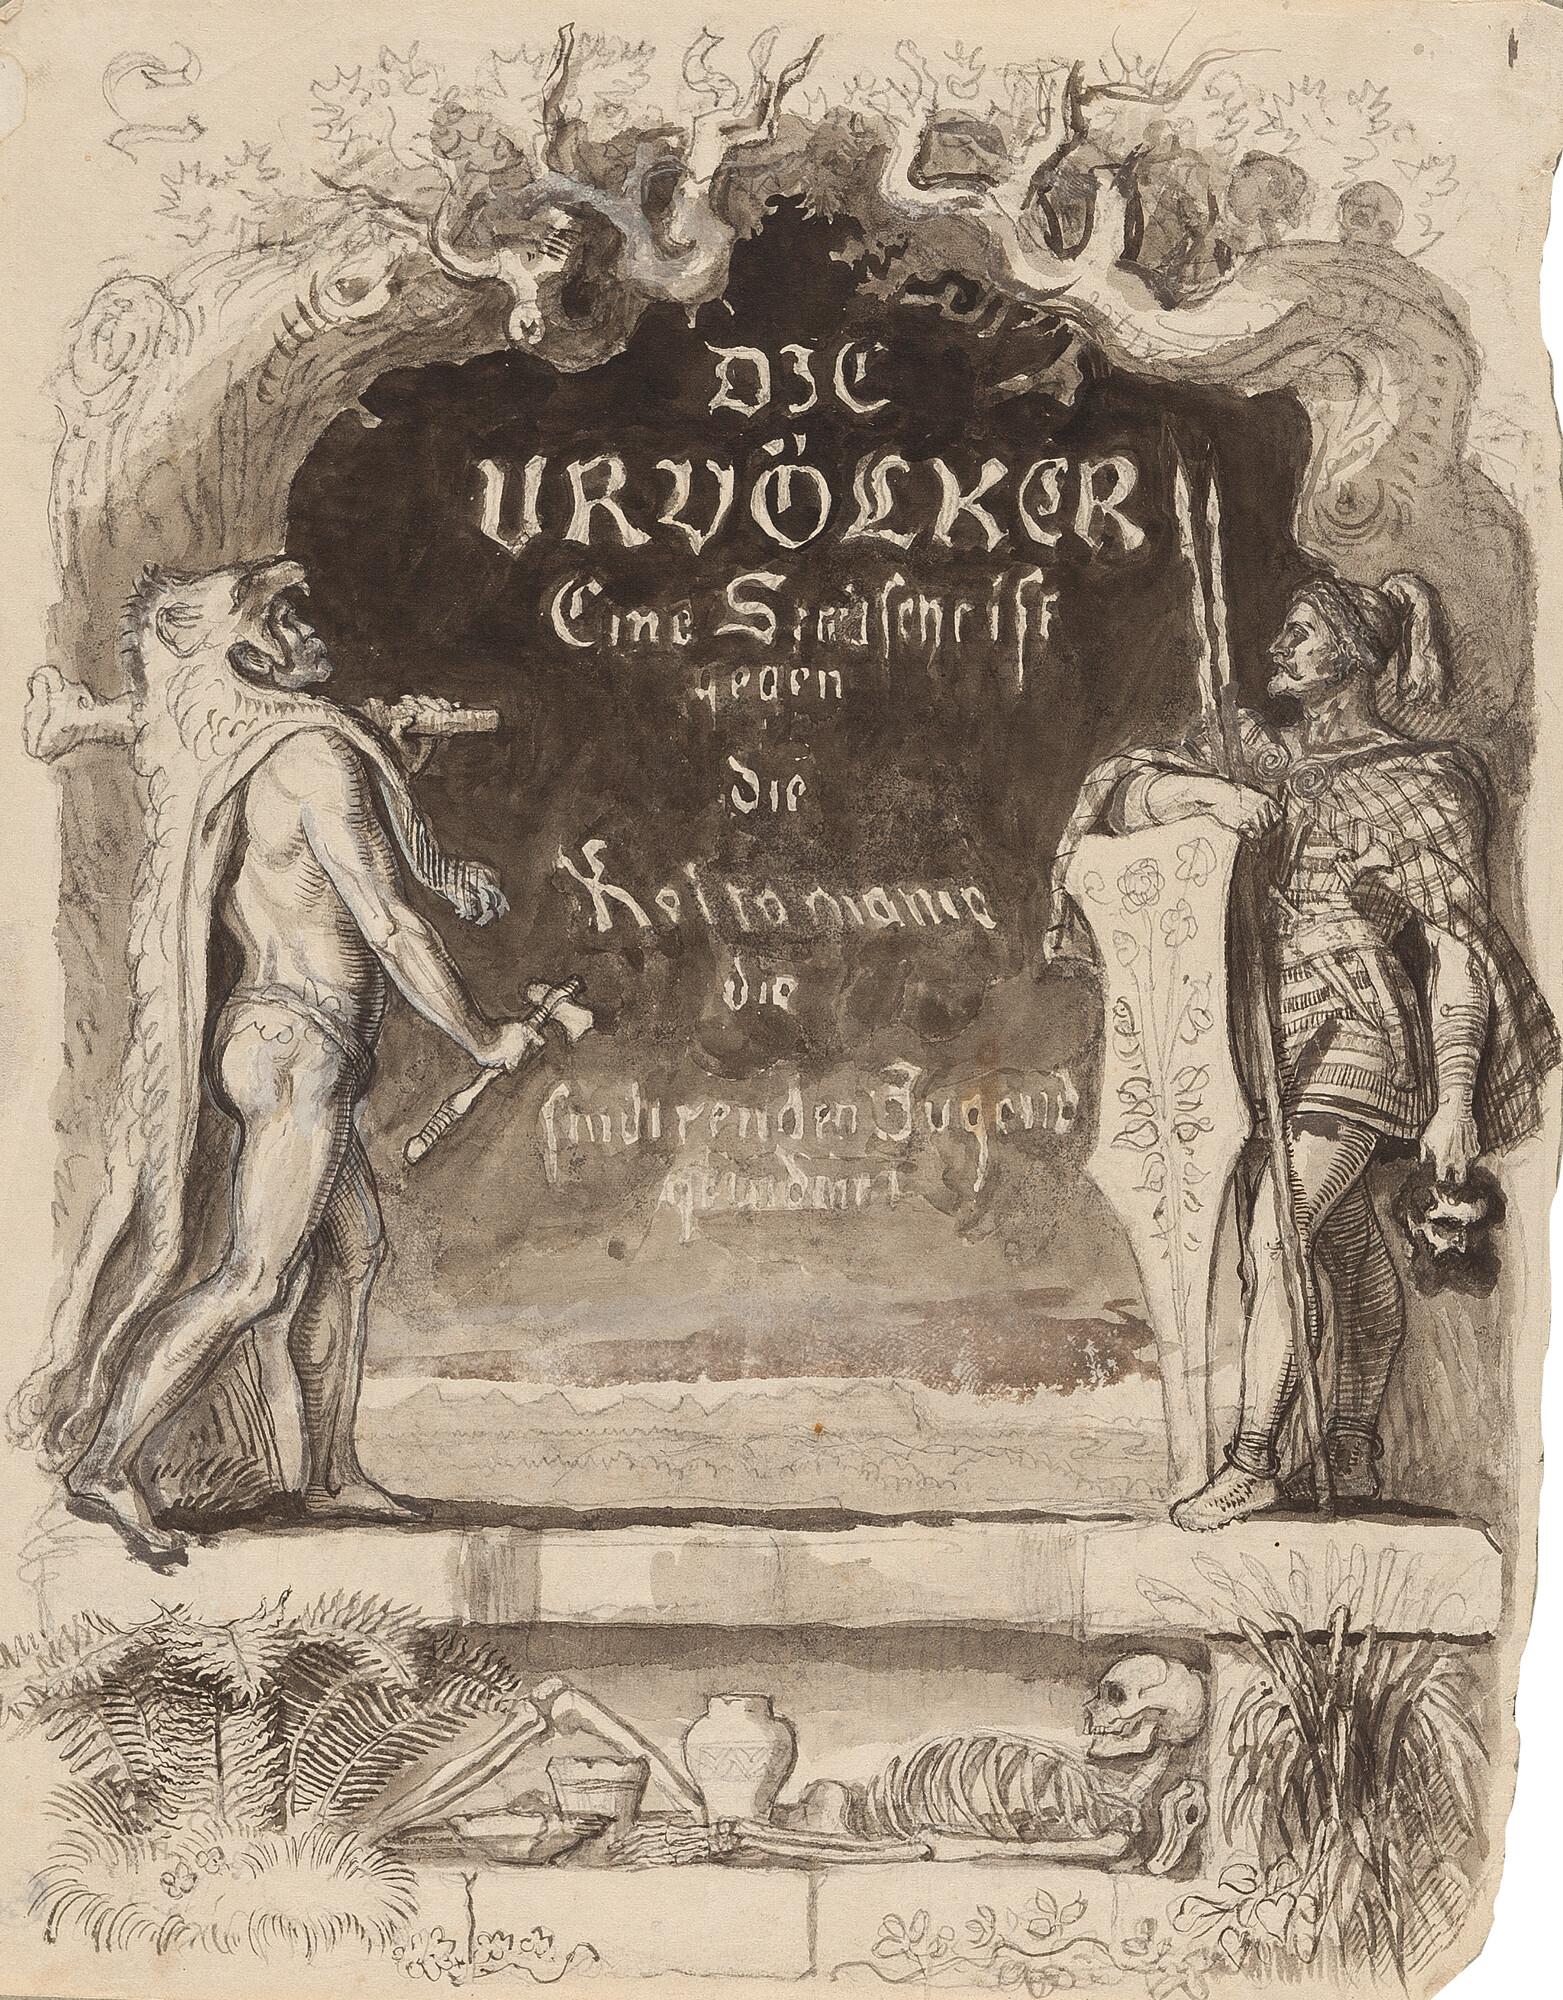 DIE
URVÖLKER
Eine Streidschrift
gegen
die
Keltomanie
die
studirenden Jugend
gewidmet